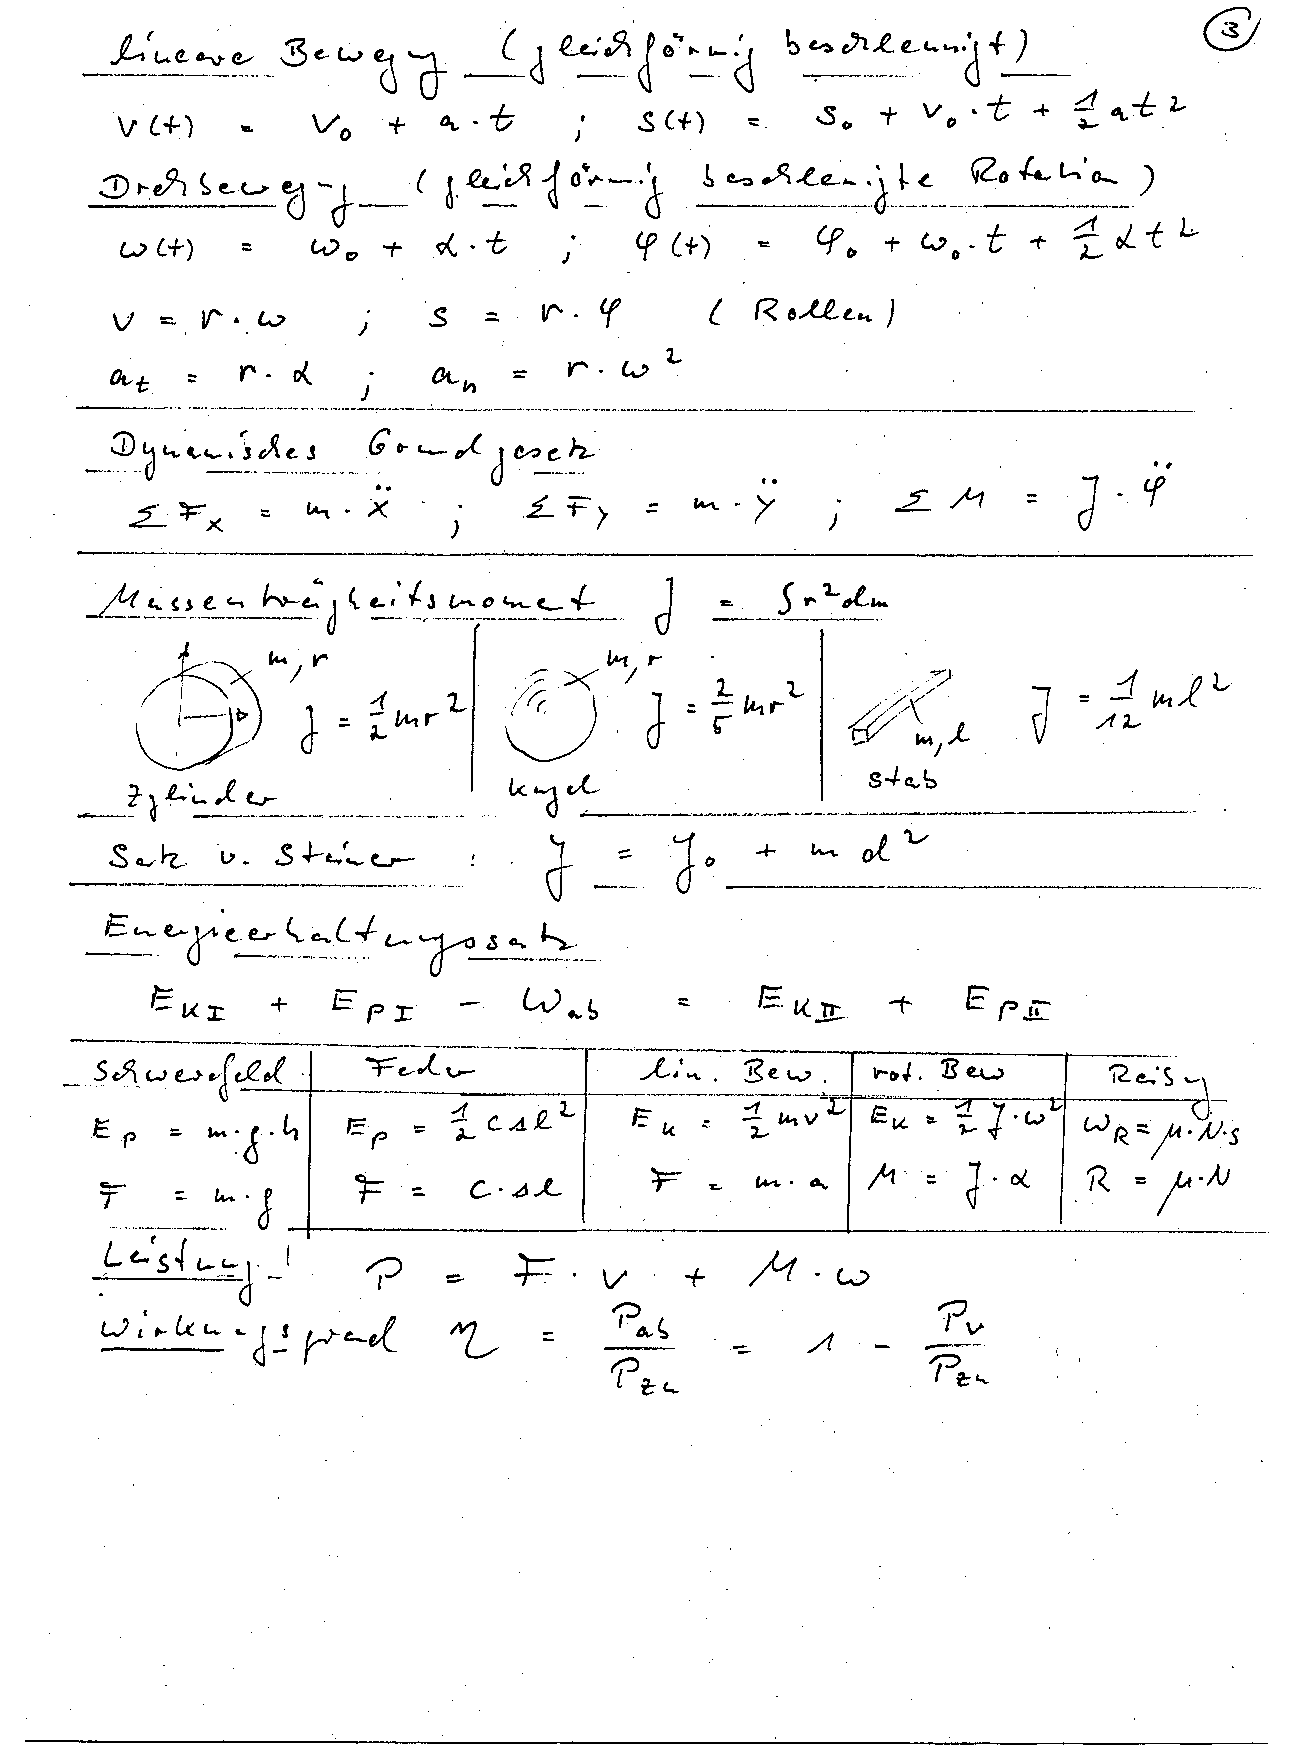 3
lineare Bewegung (gleichförmig beschleunigt)
v(t) = v₀ + a·t ; s(t) = s₀ + v₀·t + 1/2 at²
Drehbewegung (gleichförmig beschleunigte Rotation)
ω(t) = ω₀ + α·t ; φ(t) = φ₀ + ω₀·t + 1/2 αt²
v = r·ω ; s = r·φ (Rollen)
a_t = r·α ; a_n = r·ω²
Dynamisches Grundgesetz
Σ F_x = m·ẍ ; Σ F_y = m·ÿ ; Σ M = J·φ̈
Massenträgheitsmoment J = ∫r²dm
m, r J = 1/2 mr² m, r J = 2/5 mr² m, l J = 1/12 ml²
Zylinder Kugel Stab
Satz v. Steiner : J = J₀ + m d²
Energieerhaltungssatz
E_KI + E_PI - W_ab = E_KII + E_PII
Schwerefeld Feder lin. Bew. rot. Bew Reibg
E_P = m·g·h E_P = 1/2 cΔl² E_K = 1/2 mv² E_K = 1/2 J·ω² W_R = μ·N·s
F = m·g F = c·Δl F = m·a M = J·α R = μ·N
Leistung! P = F·v + M·ω
Wirkungsgrad η = P_ab/P_zu = 1 - P_v/P_zu